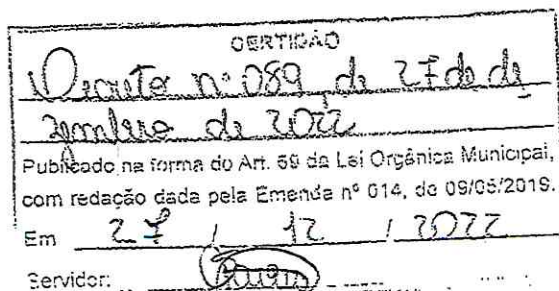 CERTIDÃO
Decreto nº 089 de 27 de de
zembro de 2022
Publicado na forma do Art. 69 da Lei Orgânica Municipal,
com redação dada pela Emenda nº 014, de 09/05/2019.
Em 27 / 12 / 2022
Servidor: